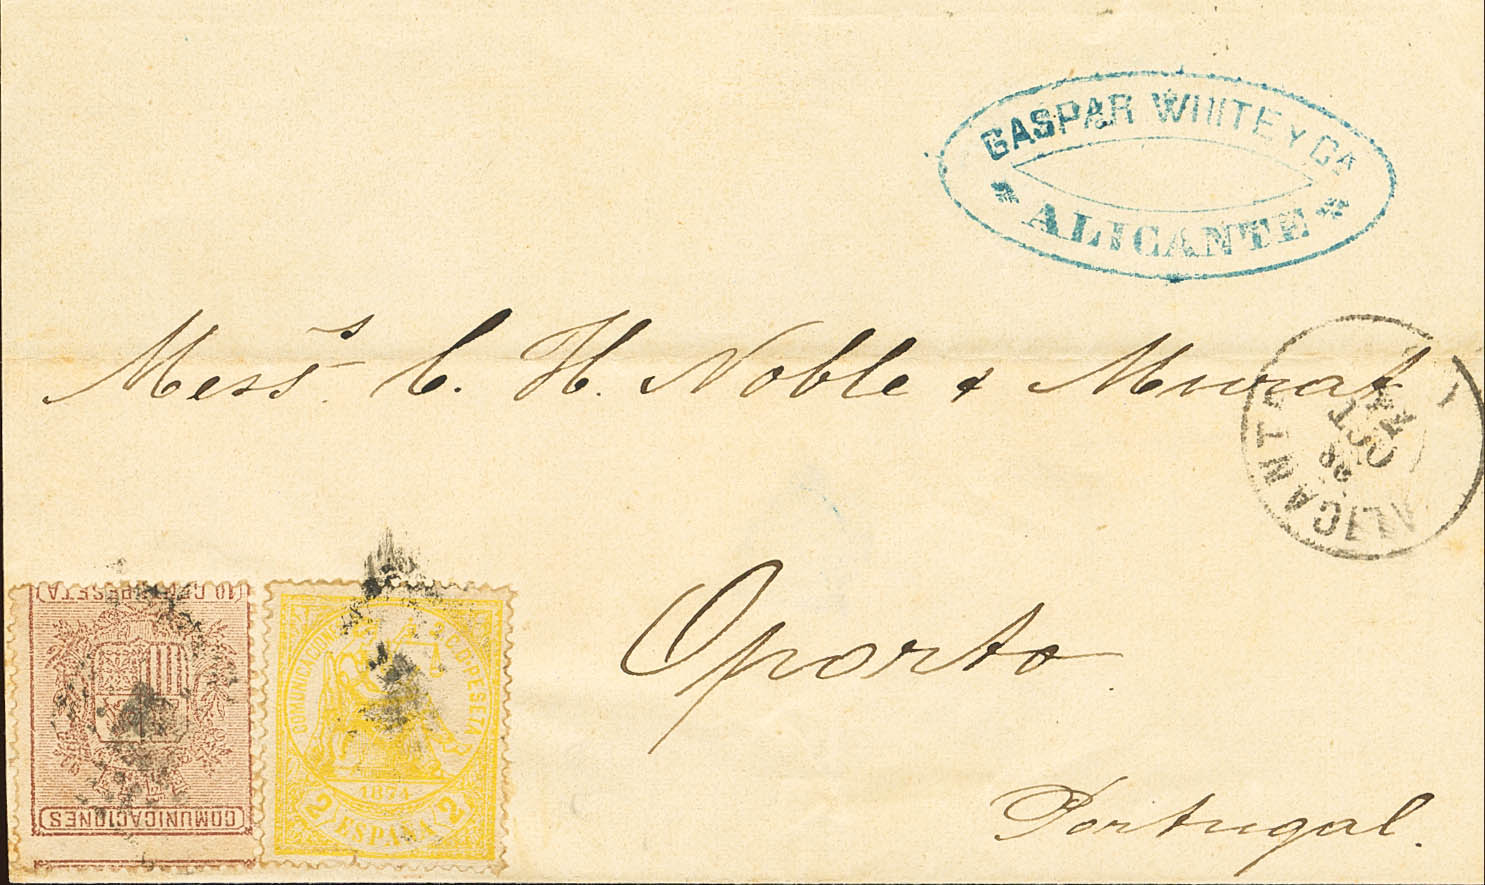 GASPAR WHITE Y CA
ALICANTE
Mess.rs C. H. Noble & Murat
ALICANTE
OCT
74
Oporto
Portugal.
10 C PESETA
COMUNICACIONES
COMUNICACIONES 2 C. DE PESETA
1874
2 ESPAÑA 2